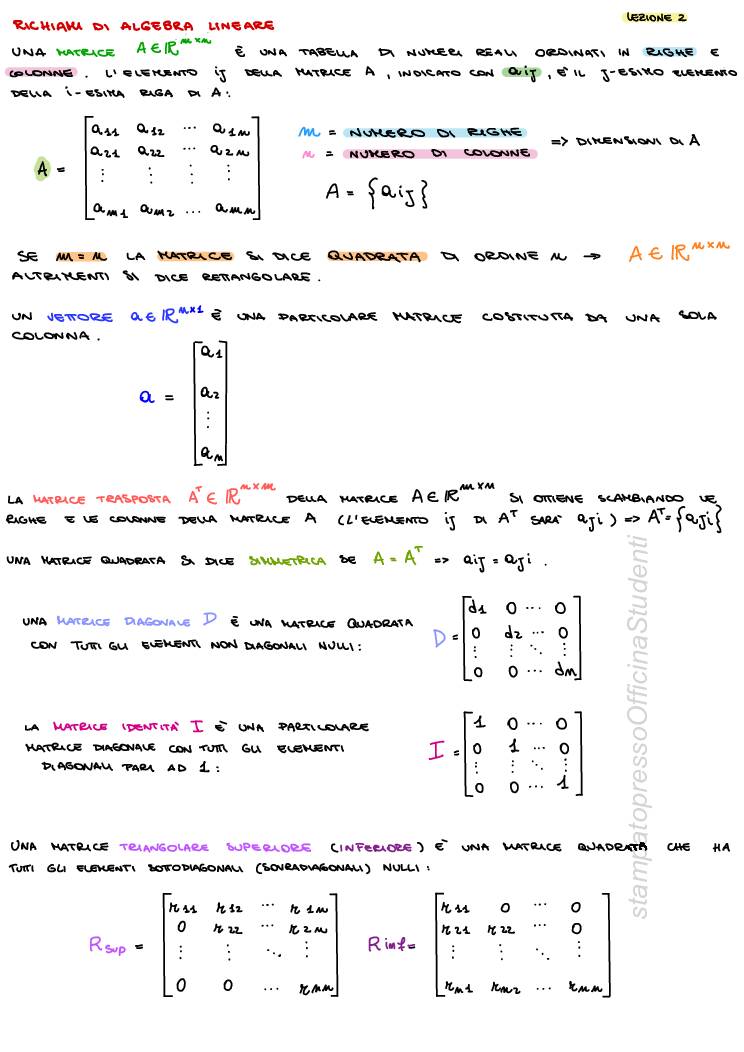 LEZIONE 2
RICHIAMI DI ALGEBRA LINEARE
UNA MATRICE A ∈ ℝ^{m×n} È UNA TABELLA DI NUMERI REALI ORDINATI IN RIGHE E
COLONNE. L'ELEMENTO ij DELLA MATRICE A, INDICATO CON aij, È IL J-ESIMO ELEMENTO
DELLA i-ESIMA RIGA DI A:
A = [a11 a12 ... a1n
a21 a22 ... a2n
⋮ ⋮ ⋮ ⋮
am1 am2 ... amn]
m = NUMERO DI RIGHE
n = NUMERO DI COLONNE => DIMENSIONI DI A
A = {aij}
SE m = n LA MATRICE SI DICE QUADRATA DI ORDINE n → A ∈ ℝ^{n×n}
ALTRIMENTI SI DICE RETTANGOLARE.
UN VETTORE a ∈ ℝ^{n×1} È UNA PARTICOLARE MATRICE COSTITUITA DA UNA SOLA
COLONNA.
a = [a1
a2
⋮
an]
LA MATRICE TRASPOSTA A^T ∈ ℝ^{n×m} DELLA MATRICE A ∈ ℝ^{m×n} SI OTTIENE SCAMBIANDO LE
RIGHE E LE COLONNE DELLA MATRICE A (L'ELEMENTO ij DI A^T SARÀ aji) => A^T = {aji}
UNA MATRICE QUADRATA SI DICE SIMMETRICA SE A = A^T => aij = aji.
UNA MATRICE DIAGONALE D È UNA MATRICE QUADRATA
CON TUTTI GLI ELEMENTI NON DIAGONALI NULLI:
D = [d1 0 ... 0
0 d2 ... 0
⋮ ⋮ ⋱ ⋮
0 0 ... dn]
LA MATRICE IDENTITÀ I È UNA PARTICOLARE
MATRICE DIAGONALE CON TUTTI GLI ELEMENTI
DIAGONALI PARI AD 1:
I = [1 0 ... 0
0 1 ... 0
⋮ ⋮ ⋱ ⋮
0 0 ... 1]
UNA MATRICE TRIANGOLARE SUPERIORE (INFERIORE) È UNA MATRICE QUADRATA CHE HA
TUTTI GLI ELEMENTI SOTTODIAGONALI (SOVRADIAGONALI) NULLI:
Rsup = [r11 r12 ... r1n
0 r22 ... r2n
⋮ ⋮ ⋱ ⋮
0 0 ... rnn]
Rinf = [r11 0 ... 0
r21 r22 ... 0
⋮ ⋮ ⋱ ⋮
rn1 rn2 ... rnn]
stampatopressoOfficinaStudenti